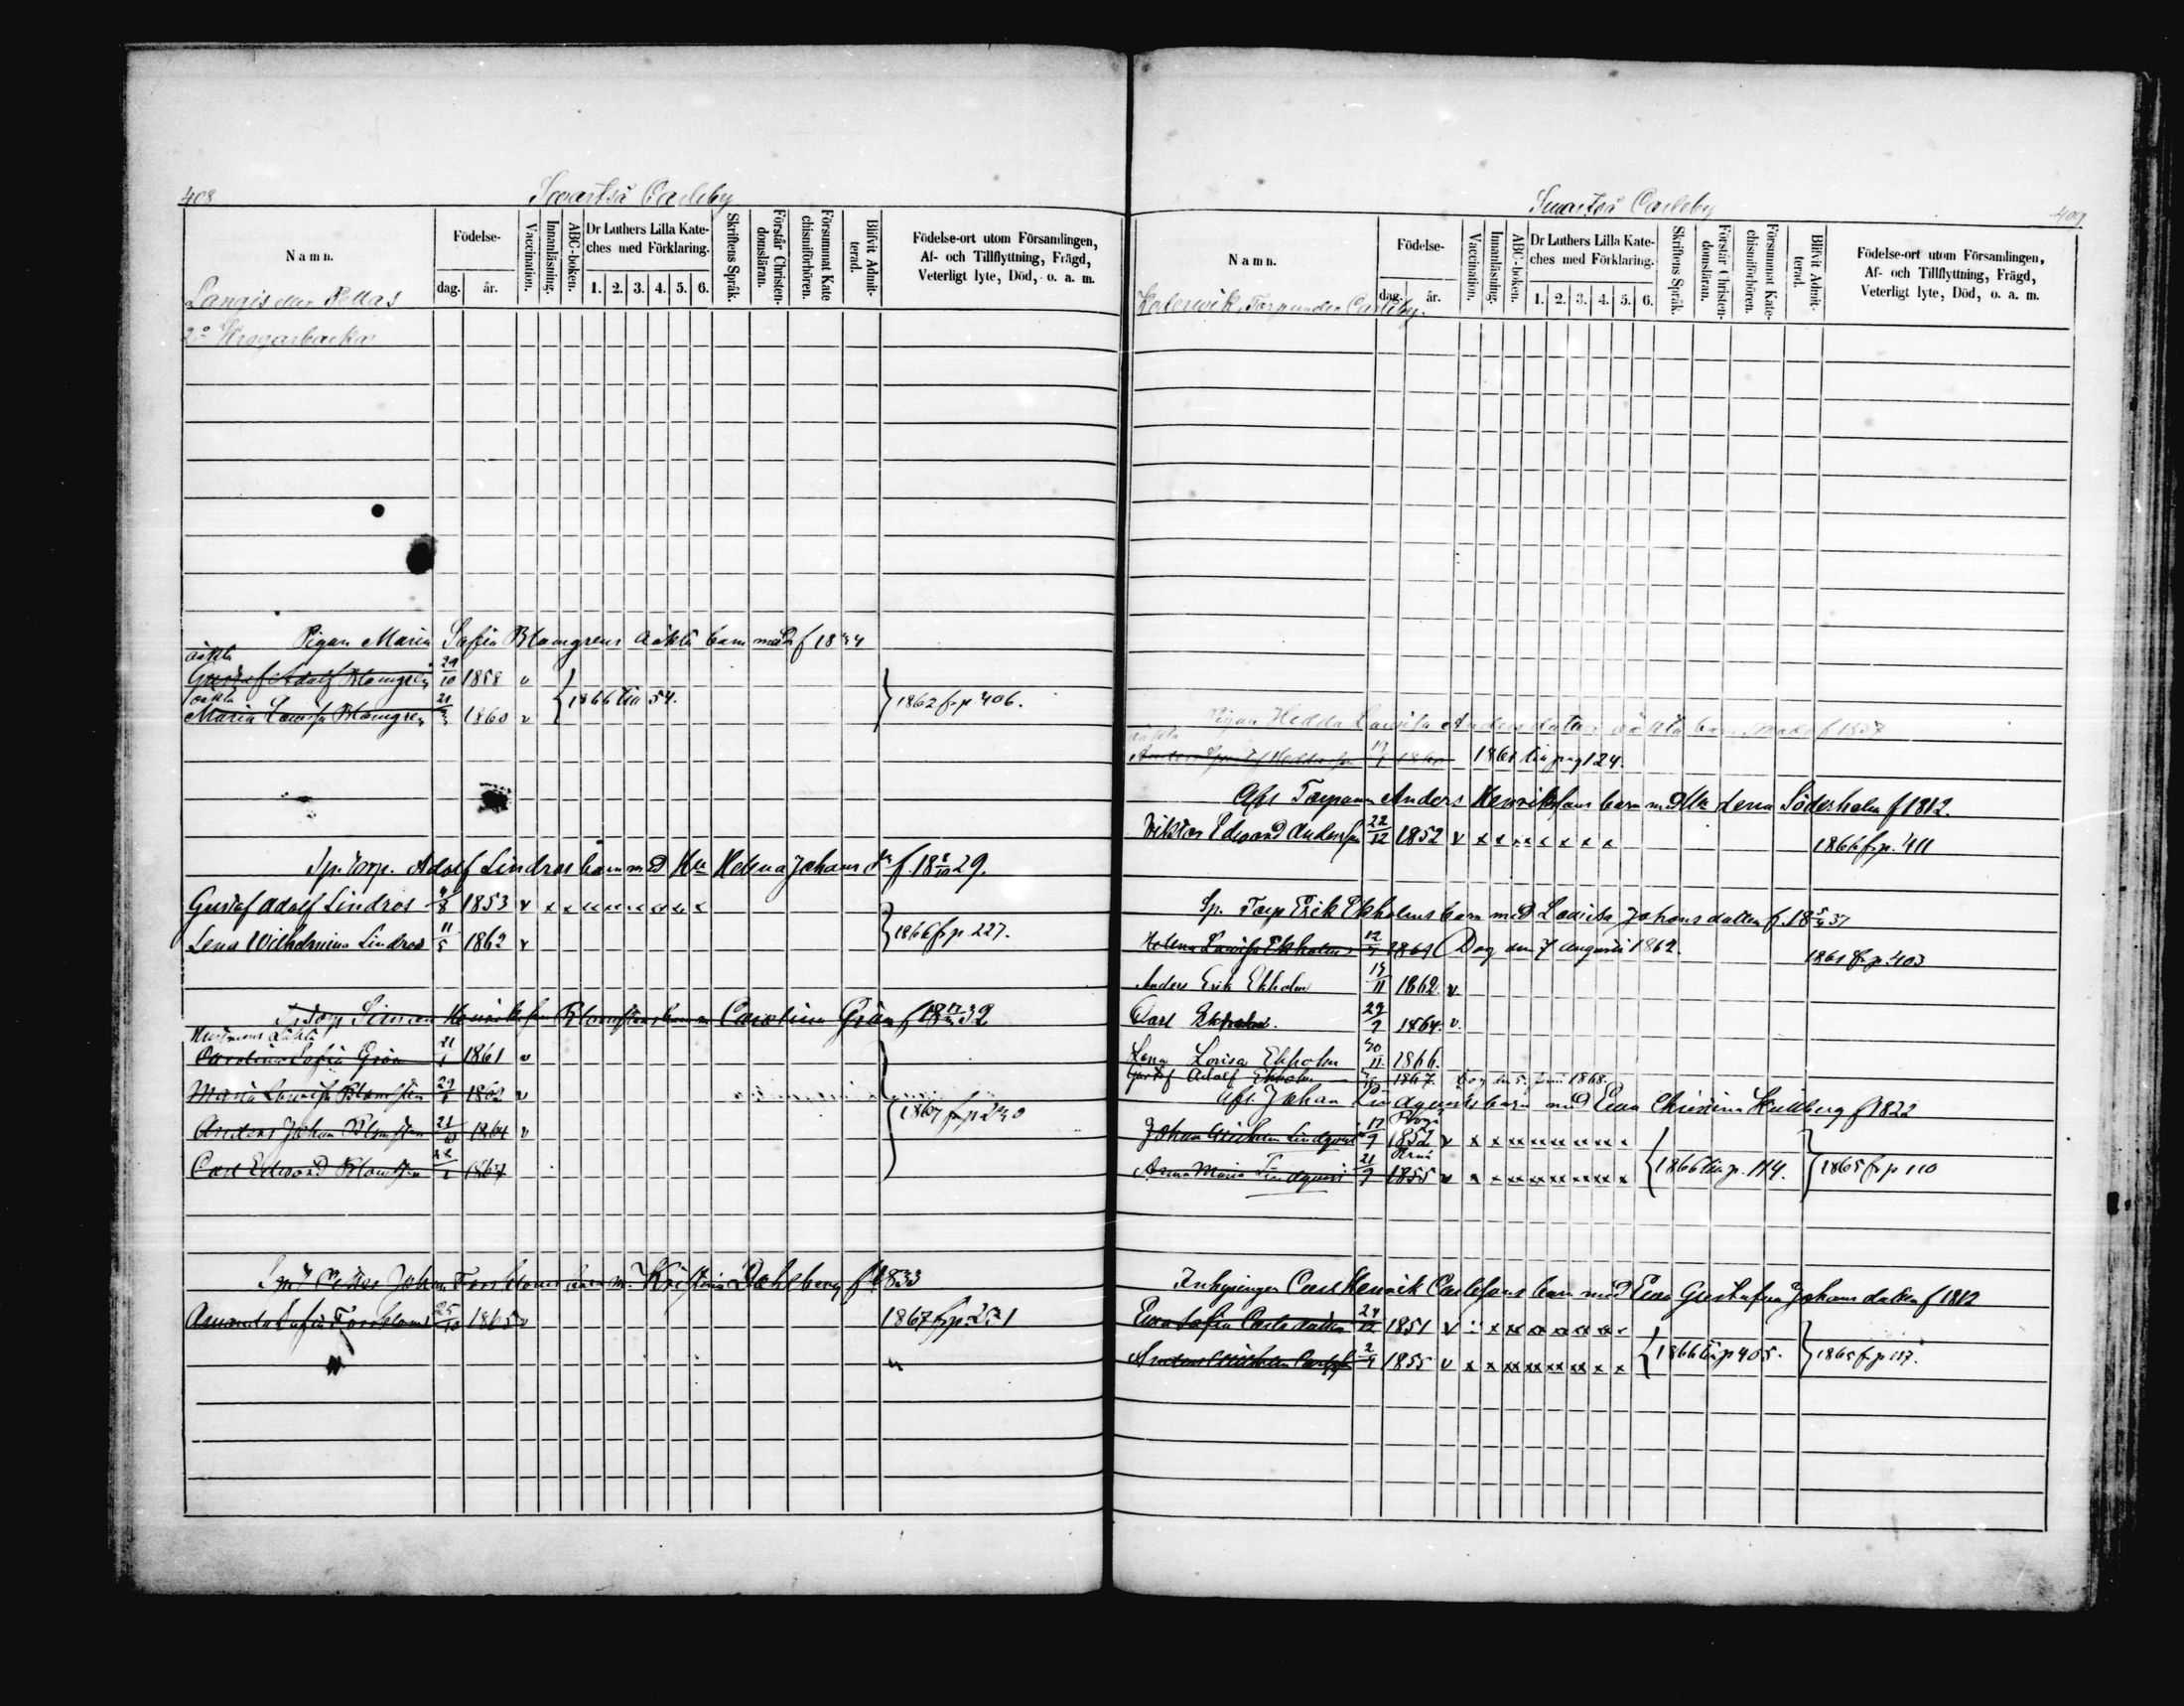 408
Swartså Carleby
Namn.
Födelse-
dag.
år.
Vaccination.
Innanläsning.
ABC-boken.
Dr Luthers Lilla Kate-
ches med Förklaring.
1. 2. 3. 4. 5. 6.
Skriftens Språk.
Förstår Christen-
domsläran.
Försummat Kate
chismiförhören.
Blifvit Admit-
terad.
Födelse-ort utom Församlingen,
Af- och Tillflyttning, Frägd,
Veterligt lyte, Död, o. a. m.
Pellas
2o Krogarbacka
Pigan Maria Safia Blomgrens oäkta barn
oäkta
Gustaf Adolf Blomgren 29/10 1858 v
oäkta
Maria Lovisa Blomgren 1860 v
{ 1866 till 54.
} 1862 fr p 406.
Sp. torp. Adolf Lindros barn med Hu Helena Johans dr f 18 29.
Gustaf Adolf Lindros 1853 v x x x x x x x x
Lena Wilhelmina Lindros 11/5 1862 v
} 1866 fr p 227.
Torp Simon Henriksson Blomsten barn m Carolina Grön f 18 32
oäkta
Carolina Sofia Grön 1861 v
Maria Lovisa Blomsten 1862 v
Anders Johan Blomsten 1864 v
Carl Edward Blomsten 1867
1867 fr p 240
Petter Johan Forsbloms barn m. Kristina Dahlberg f 1833
Amanda Safia Forsblom 25/10 1865 v
1867 fr p 231
Swartså Carleby
409
Namn.
Födelse-
dag.
år.
Vaccination.
Innanläsning.
ABC-boken.
Dr Luthers Lilla Kate-
ches med Förklaring.
1. 2. 3. 4. 5. 6.
Skriftens Språk.
Förstår Christen-
domsläran.
Försummat Kate-
chismiförhören.
Blifvit Admit-
terad.
Födelse-ort utom Församlingen,
Af- och Tillflyttning, Frägd,
Veterligt lyte, Död, o. a. m.
Torp under Carleby.
Pigan Hedda Lovisa Andersdotters oäkta barn f 1837
oäkta
1860 1861 till pag 124.
Afl Torparen Anders Henrikssons barn med Lena Söderholm f 1812.
Viktor Edvard Andersson 22/12 1852 v x x x x x x x
1866 fr p. 411
Sp. Torp Erik Ekholms barn med Lovisa Johansdotter f. 18 37
Helena Lovisa Ekholm 1861 Dog den 7 augusti 1862.
1861 fr p 403
Anders Erik Ekholm 1862 v
Carl Ekholm. 1864. v.
Lena Lovisa Ekholm 30/11 1866.
Gustaf Adolf Ekholm 1867. Dog den 5. Juni 1868.
Afl. Johan Lindqvists barn med Eva Christina Kullberg f 1822
Borgå
Johan Wilhelm Lindqvist 17/9 1852 v x x x x x x x x
Pernå
Anna Maria Lindqvist 21/9 1855 v x x x x x x x x
{ 1866 till p. 114.
} 1865 fr p 110
Inhysingen Carl Henrik Carlssons barn med Eva Gustafva Johans dotter f 1812
Eva Safia Carlsdotter 24/12 1851 v x x x x x x x
Anders Wilhelm Carlsson 1855 v x x x x x x x x
{ 1866 till p 405.
} 1865 fr p 117.